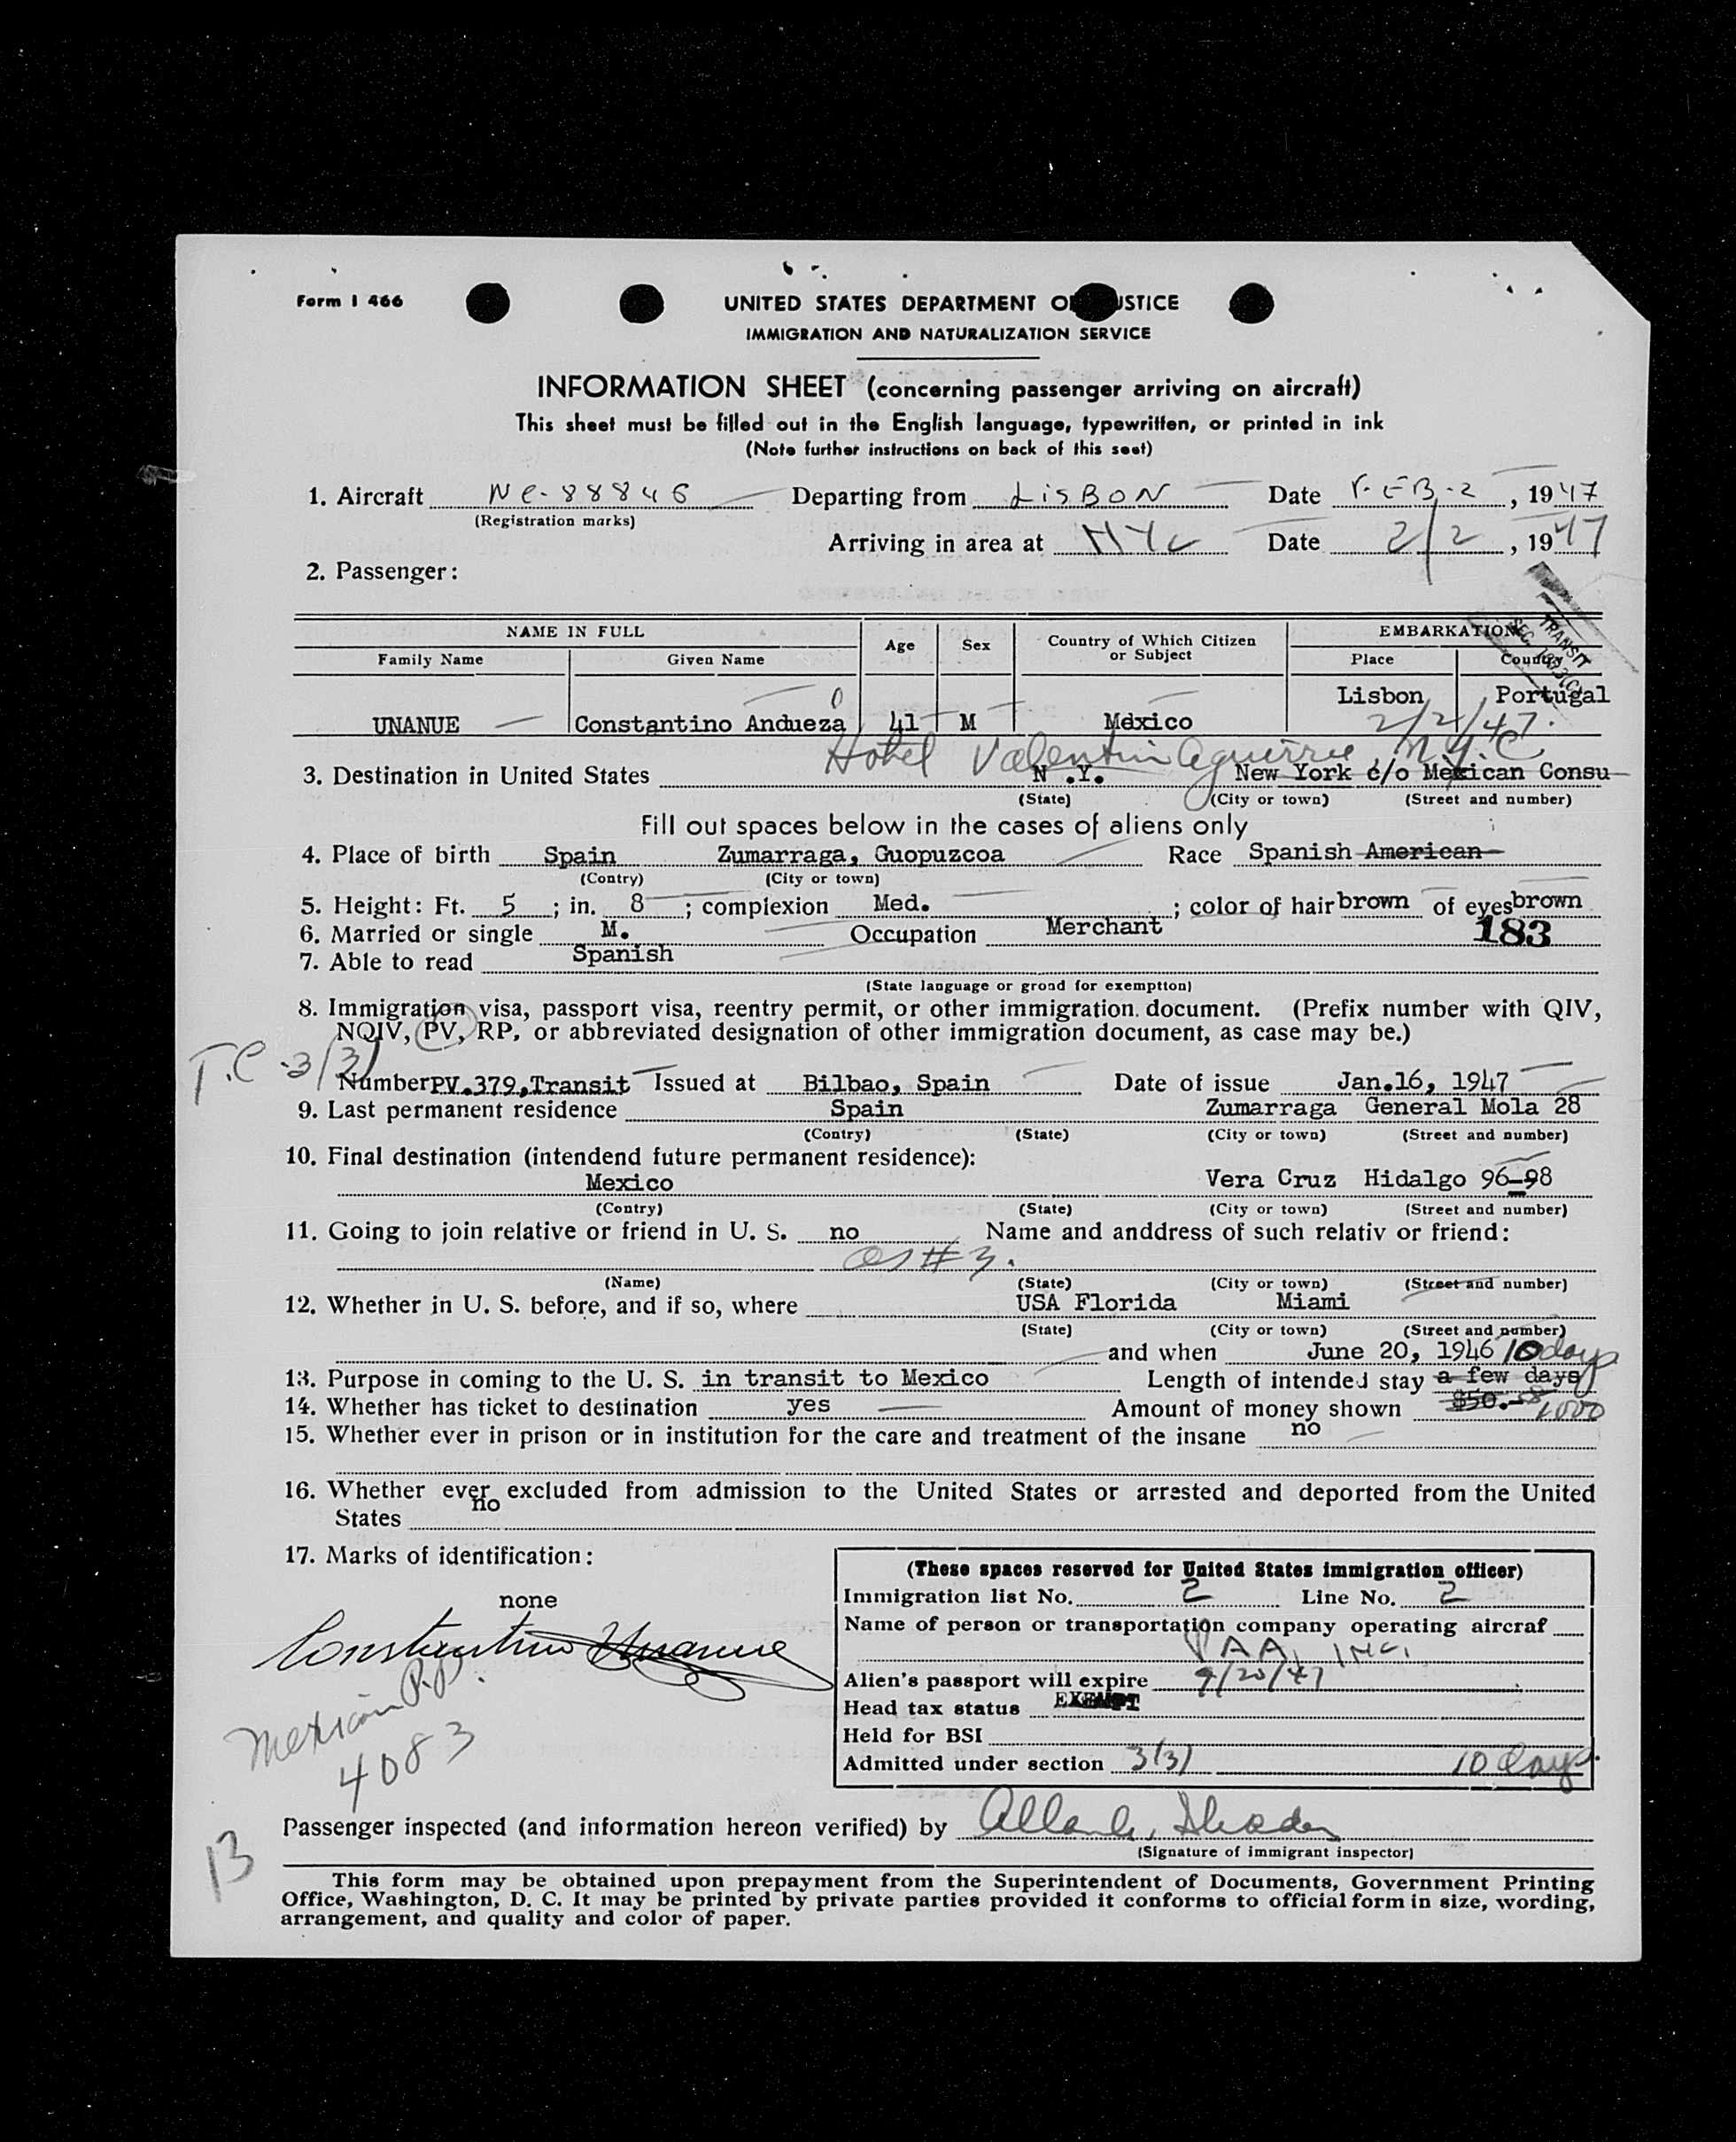 Form I 466
UNITED STATES DEPARTMENT O USTICE
IMMIGRATION AND NATURALIZATION SERVICE
INFORMATION SHEET (concerning passenger arriving on aircraft)
This sheet must be filled out in the English language, typewritten, or printed in ink
(Note further instructions on back of this seet)
1. Aircraft NC-88846 Departing from LISBON Date FEB-2, 1947
(Registration marks)
Arriving in area at NYC Date 2/2, 1947
2. Passenger:
NAME IN FULL Age Sex Country of Which Citizen or Subject EMBARKATION
Family Name Given Name Place Country
TRANSIT
UNANUE Constantino Andueza 41 M México Lisbon Portugal
2/2/47.
Hotel Valentin Aguirre, N.Y.C
3. Destination in United States N.Y. New York c/o Mexican Consu
(State) (City or town) (Street and number)
Fill out spaces below in the cases of aliens only
4. Place of birth Spain Zumarraga, Guopuzcoa Race Spanish American
(Contry) (City or town)
5. Height: Ft. 5; in. 8; complexion Med.; color of hair brown of eyes brown
6. Married or single M. Occupation Merchant 183
7. Able to read Spanish
(State language or groud for exemption)
8. Immigration visa, passport visa, reentry permit, or other immigration document. (Prefix number with QIV,
NQIV, PV, RP, or abbreviated designation of other immigration document, as case may be.)
T.C-3/3)
Number PV.379, Transit Issued at Bilbao, Spain Date of issue Jan.16, 1947
9. Last permanent residence Spain Zumarraga General Mola 28
(Contry) (State) (City or town) (Street and number)
10. Final destination (intendend future permanent residence):
Mexico Vera Cruz Hidalgo 96-98
(Contry) (State) (City or town) (Street and number)
11. Going to join relative or friend in U. S. no Name and anddress of such relativ or friend:
as #3.
(Name) (State) (City or town) (Street and number)
12. Whether in U. S. before, and if so, where USA Florida Miami
(State) (City or town) (Street and number)
and when June 20, 1946 10 days
13. Purpose in coming to the U. S. in transit to Mexico Length of intended stay a few days
14. Whether has ticket to destination yes Amount of money shown $50.- 1000
15. Whether ever in prison or in institution for the care and treatment of the insane no
16. Whether ever excluded from admission to the United States or arrested and deported from the United
States no
17. Marks of identification:
none
Constantino Unanue
Mexican P.P.
4083
(These spaces reserved for United States immigration officer)
Immigration list No. 2 Line No. 2
Name of person or transportation company operating aircraf
PAA, INC.
Alien's passport will expire 9/20/47
Head tax status EXEMPT
Held for BSI
Admitted under section 3(3) 10 days.
Passenger inspected (and information hereon verified) by
(Signature of immigrant inspector)
13
This form may be obtained upon prepayment from the Superintendent of Documents, Government Printing
Office, Washington, D. C. It may be printed by private parties provided it conforms to official form in size, wording,
arrangement, and quality and color of paper.